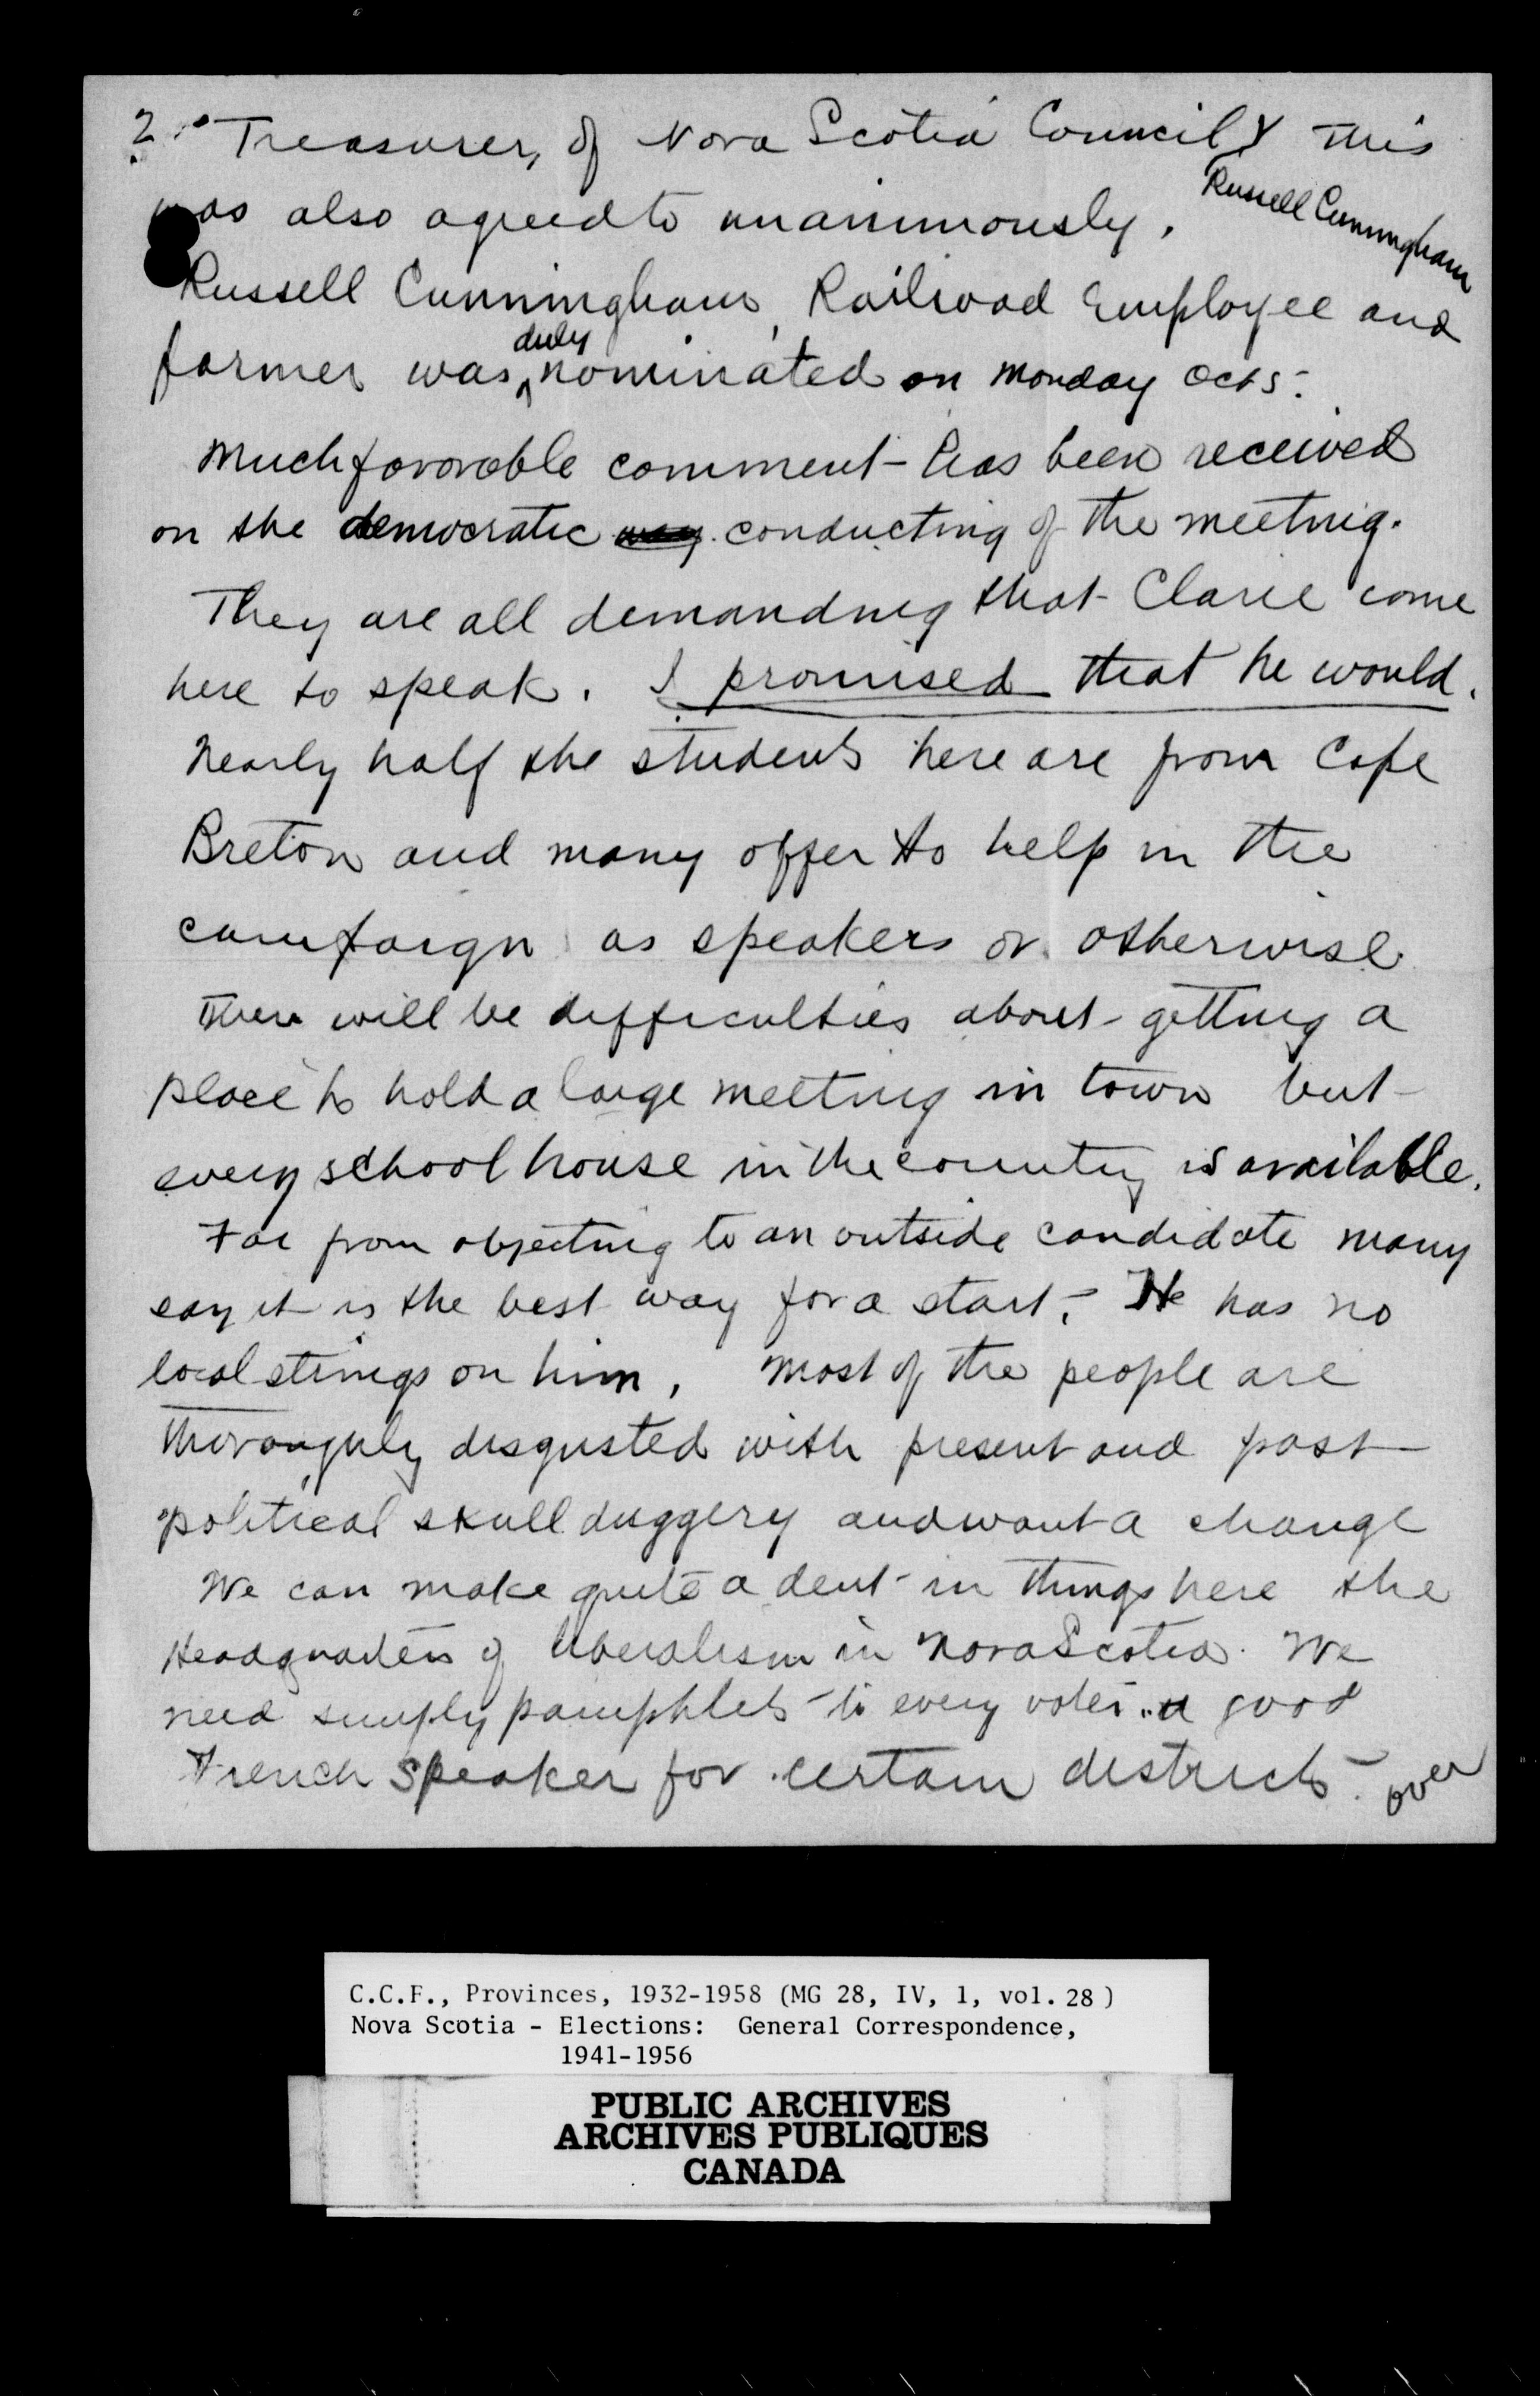 2. Treasurer, of Nova Scotia Council & This
Russell Cunningham
was also agreed to unanimously.
Russell Cunningham, Railroad Employee and
duly
farmer was nominated on Monday Oct 5.
Much favorable comment has been received
on the democratic way conducting of the meeting.
They are all demanding that Clarie come
here to speak. I promised that he would.
Nearly half the students here are from Cape
Breton and many offer to help in the
campaign as speakers or otherwise
There will be difficulties about getting a
place to hold a large meeting in town but
every school house in the country is available.
Far from objecting to an outside candidate many
say it is the best way for a start. He has no
local strings on him. Most of the people are
thoroughly disgusted with present and past
political skullduggery and want a change
We can make quite a dent in things here the
Headquarters of liberalism in Nova Scotia. We
need simply pamphlets to every voter .. a good
French speaker for certain districts. over
C.C.F., Provinces, 1932-1958 (MG 28, IV, 1, vol. 28 )
Nova Scotia - Elections: General Correspondence,
1941-1956
PUBLIC ARCHIVES
ARCHIVES PUBLIQUES
CANADA